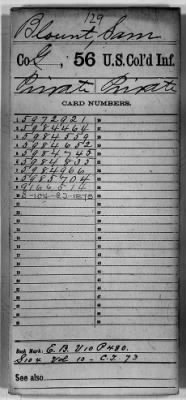 129
Blount, Sam
Co G, 56 U.S. Col'd Inf.
Private Private
CARD NUMBERS.
1 5972921
2 5984464
3 5984559
4 5984652
5 5984745
6 5984833
7 5984966
8 5985704
9 9166514
10 S-104-83-1873
Book Mark: E. B. V 10 P 480.
S 104 Vol 10 - C.T. 73
See also